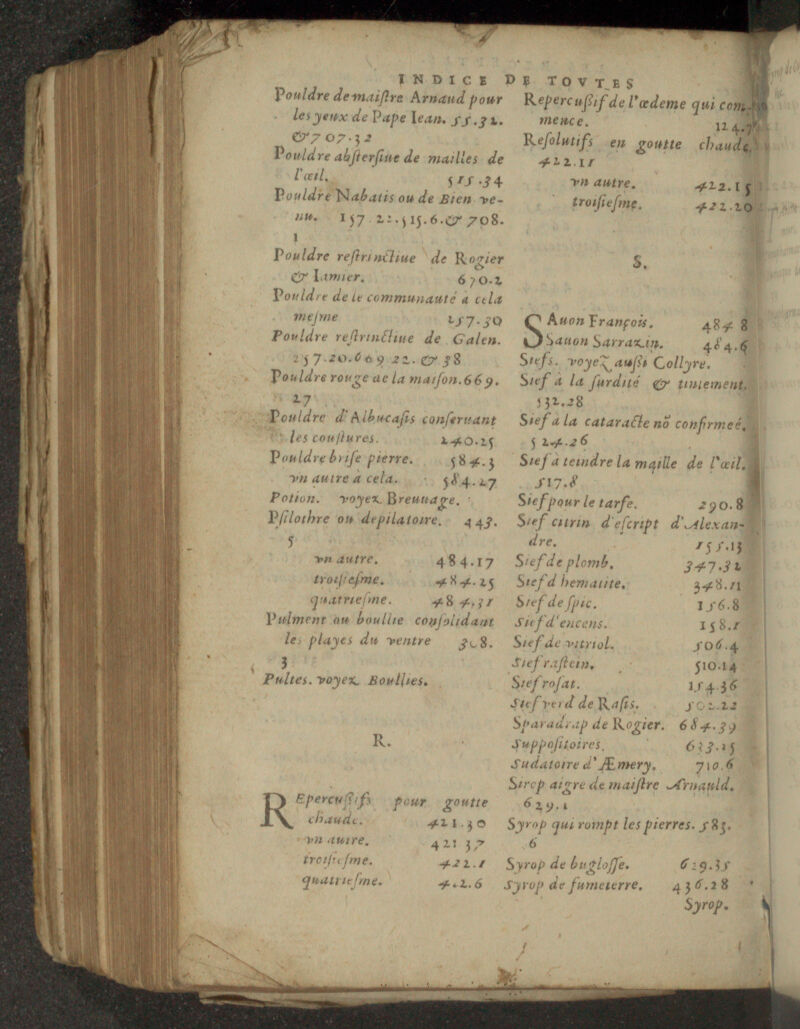 INDICE DE TOVTES
Pouldre de maistre Arnaud pour
les yeux de Pape Iean. 55.32.
& 707.32
Pouldre absterſiue de mailles de
l'œil. 515.34
Pouldre Nabatis ou de Bien ve-
nu. 157 22.515.6.& 708.
1
Pouldre reſtrinctiue de Rogier
& Iamier. 670.2
Pouldre de le communauté a cela
meſme 257.30
Pouldre reſtrinctiue de Galen.
257.20.669 22. & 38
Pouldre rouge de la maiſon. 669.
27
Pouldre d'Albucaſis conſeruant
les couſtures. 240.25
Pouldre briſe pierre. 584.3
vn autre a cela. 584.27
Potion. voyez Breuuage.
Pſilothre ou depilatoire. 443.
5
vn autre. 484.17
troiſieſme. 484.25
quatrieſme. 484.31
Pulment ou boullie conſolidant
les playes du ventre 308.
3
Pultes. voyez Boullies.
R.
REpercuſsifs pour goutte
chaude. 421.30
vn autre. 421 37
troiſieſme. 422.1
quatrieſme. 422.6
Repercuſsif de l'œdeme qui com-
mence. 124.
Reſolutifs en goutte chaude.
422.11
vn autre. 422.15
troiſieſme. 422.20
S.
SAuon François. 484 8
Sauon Sarrazin. 484.6
Stefs. voyez auſsi Collyre.
Sief a la ſurdité & tintement.
532.28
Sief a la cataracte nõ confirmeé.
524.26
Sief a teindre la maille de l'œil.
517.8
Sief pour le tarfe. 290.8
Sief citrin d'eſcript d'Alexan-
dre. 155.13
Sief de plomb. 347.32
Sief d'hematite. 348.11
Sief de ſpic. 156.8
Sief d'encens. 158.1
Sief de vitriol. 506.4
Sief raſtein. 510.14
Sief roſat. 154.36
Sief verd de Raſis. 502.22
Sparadrap de Rogier. 684.39
Suppoſitoires. 633.25
Sudatoire d'Æmery. 710.6
Sirop aigre de maiſtre Arnauld.
629.1
Syrop qui rompt les pierres. 585.
6
Syrop de bugloſſe. 629.35
Syrop de fumeterre. 436.28
Syrop.